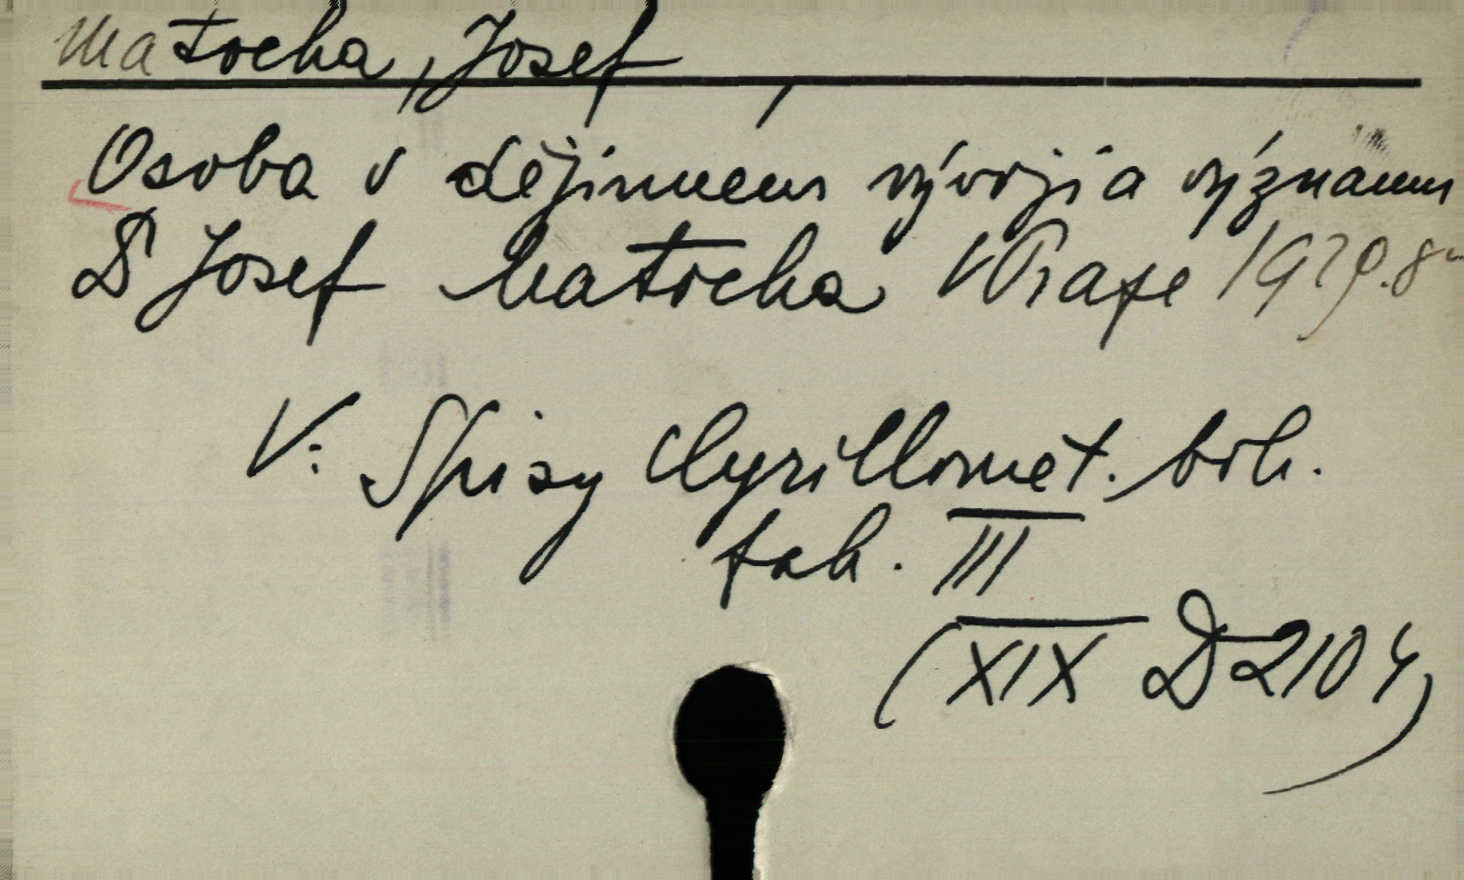 Matocha, Josef
Osoba v dějinném vývoji a významu
Dr Josef Matocha V Praze 1929. 8°
V: Spisy Cyrillomet. boh.
fak. III
(XIX D 2104)